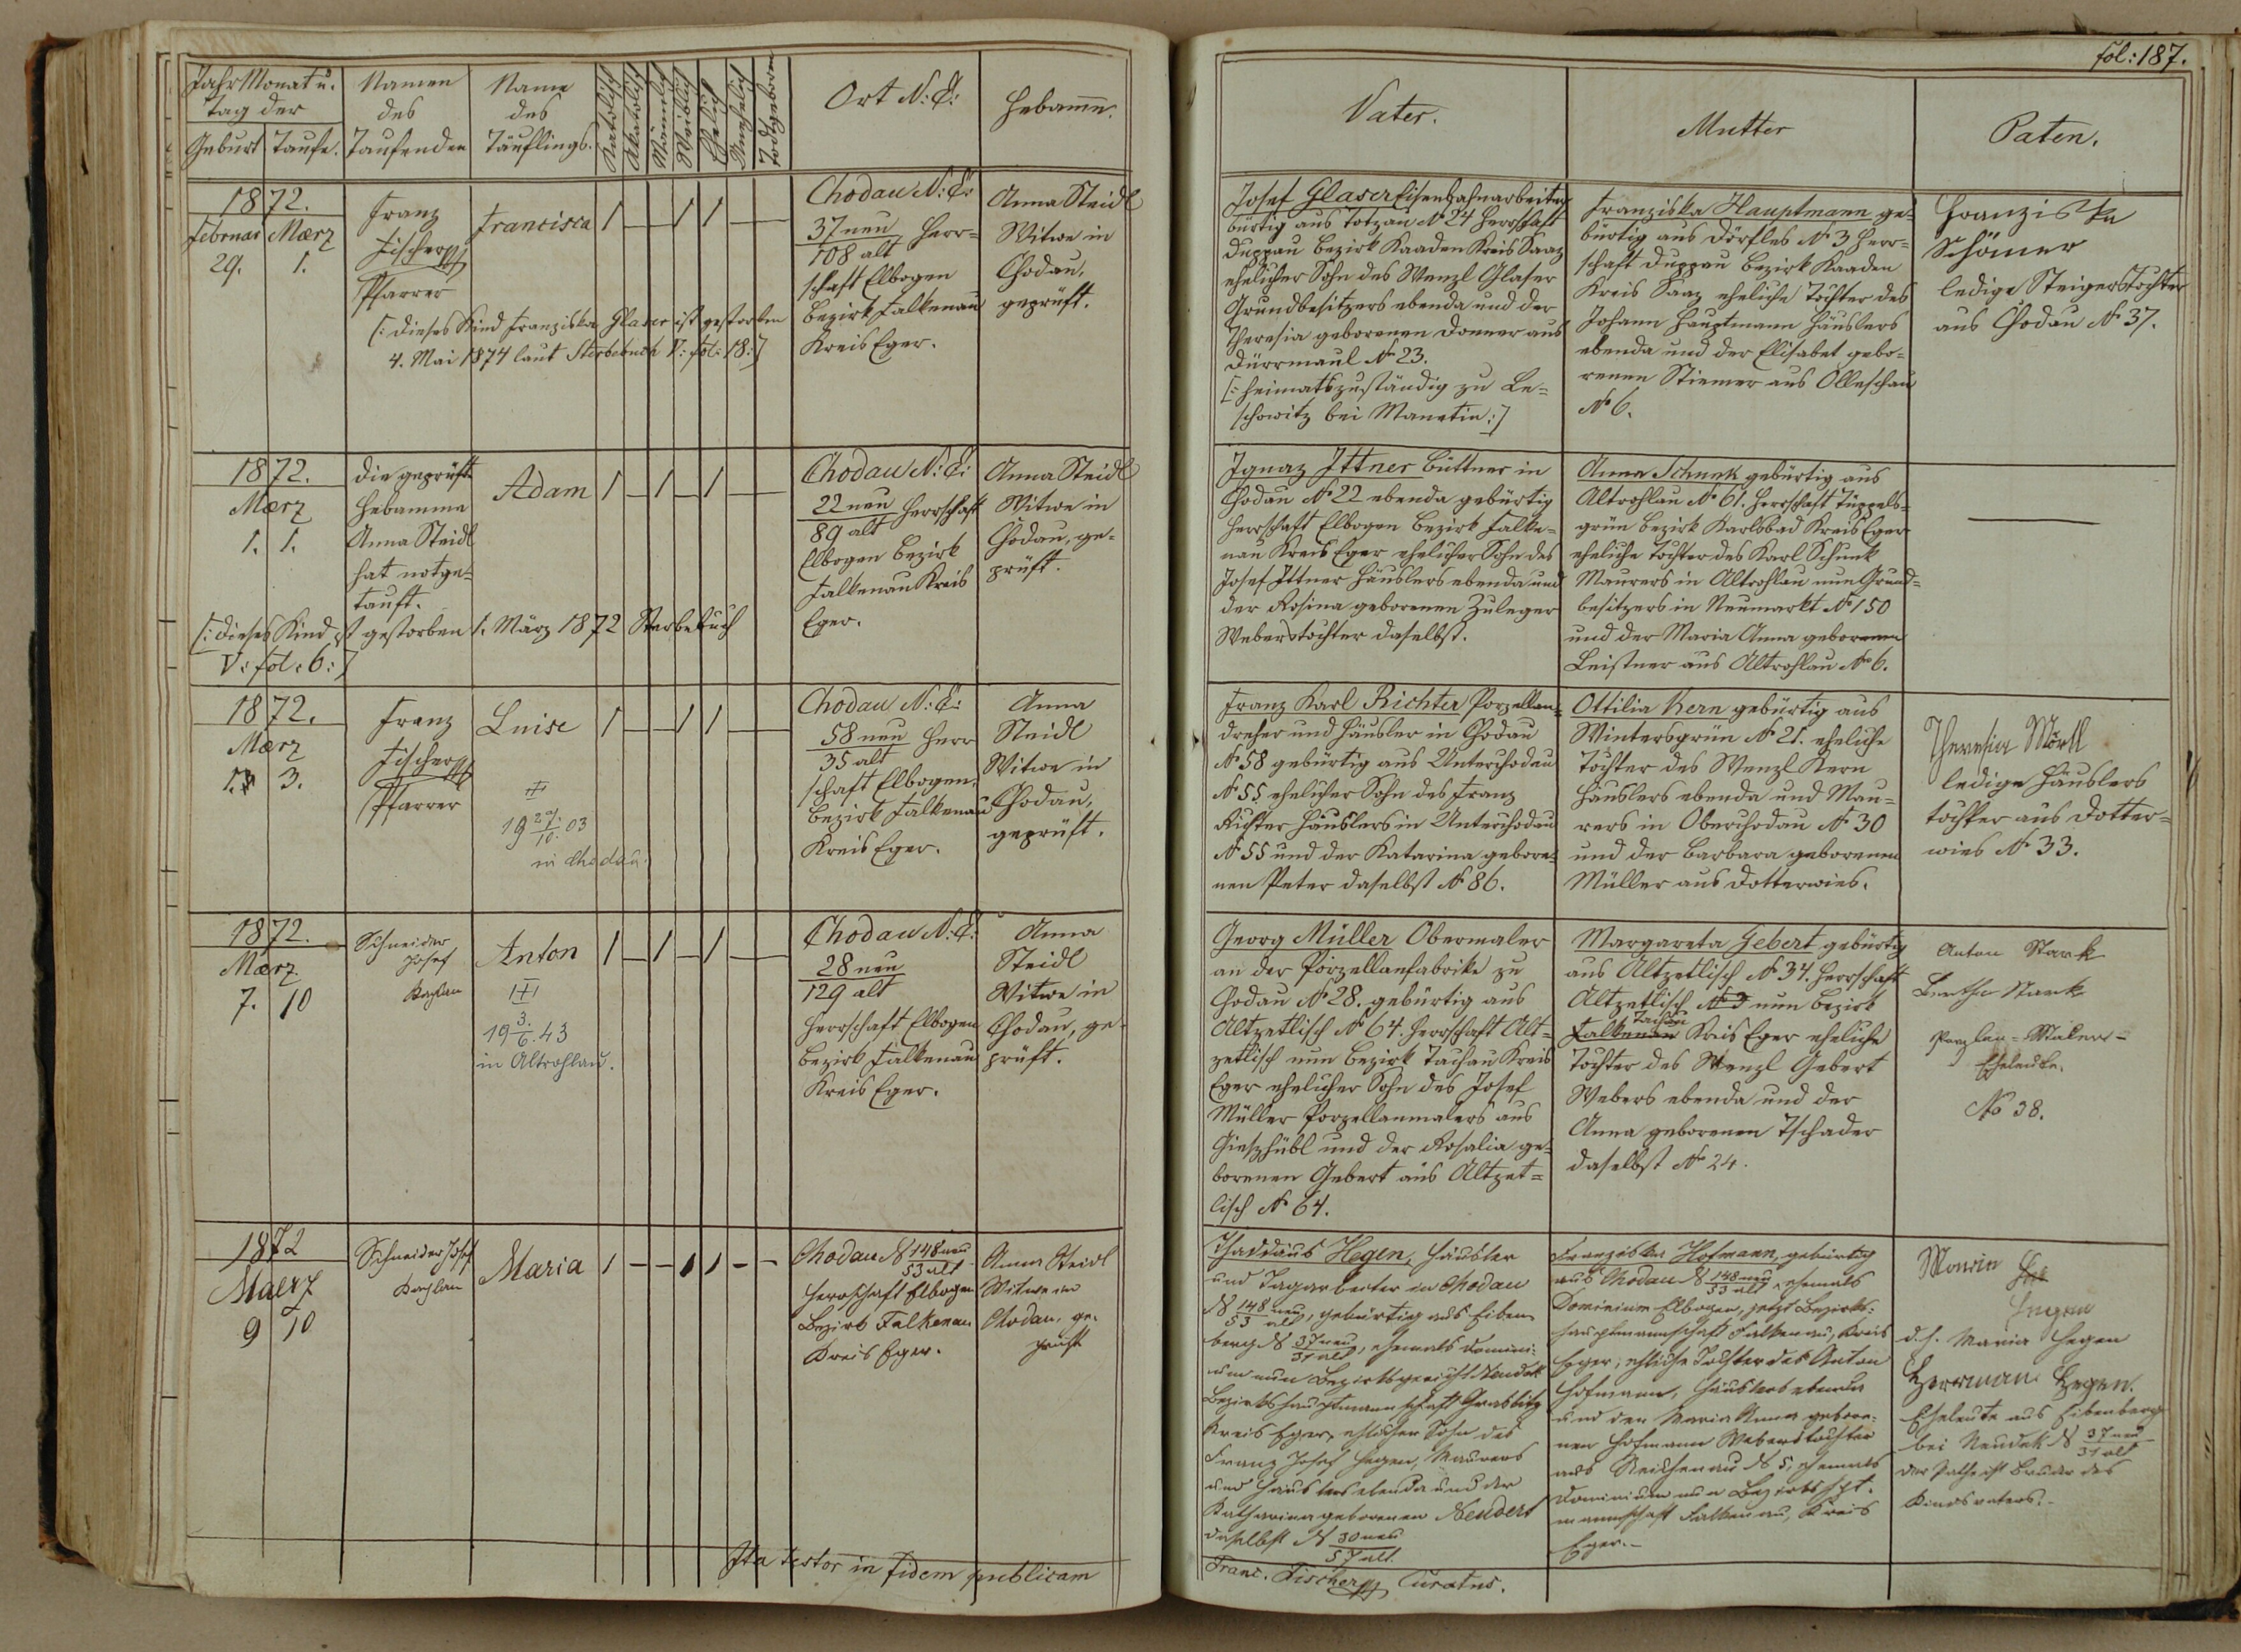 Jahr Monat u.
tag der
Geburt Taufe.
Namen
des
Taufenden
Name
des
Täuflings.
Katolisch
Akatolisch
Männlich
Weiblich
Ehelich
Unehelich
Todtgeboren
Ort N: C:
Hebamme.
1872.
Februar März
29. 1.
Franz
Fischer
Pfarrer
Francisca
1 — 1 1 —
Chodau N: C:
37 neu Herr=
108 alt
schaft Elbogen
Bezirk Falkenau
Kreis Eger.
Anna Steidl
Witwe in
Chodau,
geprüft.
[: Dieses Kind Franziska Glaser ist gestorben
4. Mai 1874 laut Sterbebuch V: fol: 18:]
1872.
März
1. 1.
Die geprüfte
Hebamme
Anna Steidl
hat notge=
tauft.
Adam
1 — 1 — 1 —
Chodau N: C:
22 neu Herrschaft
89 alt
Elbogen Bezirk
Falkenau Kreis
Eger.
Anna Steidl
Witwe in
Chodau, ge=
prüft.
[: Dieses Kind ist gestorben 1. März 1872 Sterbebuch
V: fol: 6:]
1872.
März
1. 3.
Franz
Fischer
Pfarrer
Luise
1 — 1 1 —
19 29./10. 03
in Chodau.
Chodau N: C:
58 neu Herr
35 alt
schaft Elbogen,
Bezirk Falkenau
Kreis Eger.
Anna
Steidl
Witwe in
Chodau,
geprüft.
1872.
März
7. 10
Schneider
Josef
Kaplan
Anton
1 — 1 — 1 —
19 3./6. 43
in Altrohlau.
Chodau N: C:
28 neu
129 alt
Herrschaft Elbogen
Bezirk Falkenau
Kreis Eger.
Anna
Steidl
Witwe in
Chodau, ge=
prüft.
1872
Maerz
9 10
Schneider Josef
Kaplan
Maria
1 — — 1 1 — —
Chodau N 148 neu
53 alt
Herrschaft Elbogen
Bezirk Falkenau
Kreis Eger.
Anna Steidl
Witwe in
Chodau, ge=
prüft
Ita testor in fidem publicam
fol: 187.
Vater.
Mutter
Paten.
Josef Glaser Eisenbahnarbeiter
bürtig aus Totzau No 24 Herrschaft
Duppau Bezirk Kaaden Kreis Saaz
ehelicher Sohn des Wenzl Glaser
Grundbesitzers ebenda und der
Theresia geborenen Donner aus
Dürrmaul No 23.
[: Heimatszuständig zu Le=
schowitz bei Manetin :]
Franziska Hauptmann ge=
bürtig aus Dörfles No 3 Herr=
schaft Duppau Bezirk Kaaden
Kreis Saaz eheliche Tochter des
Johann Hauptmann Häuslers
ebenda und der Elisabet gebo=
renen Stiemer aus Olleschau
No 6.
Franziska
Schömer
ledige Steigerstochter
aus Chodau No 37.
Ignaz Ittner Büttner in
Chodau No 22 ebenda gebürtig
Herrschaft Elbogen Bezirk Falke=
nau Kreis Eger ehelicher Sohn des
Josef Ittner Häuslers ebenda und
der Rosina geborenen Zuleger
Weberstochter daselbst.
Anna Schunk gebürtig aus
Altrohlau No 61. Herrschaft Tüppels=
grün Bezirk Karlsbad Kreis Eger
eheliche Tochter des Karl Schunk
Maurers in Altrohlau nun Grund=
besitzers in Neumarkt No 150
und der Maria Anna geborenen
Leistner aus Altrohlau No 6.
—
Franz Karl Richter Porzellan=
dreher und Häusler in Chodau
No 58 gebürtig aus Unterchodau
No 55 ehelicher Sohn des Franz
Richter Häuslers in Unterchodau
No 55 und der Katarina gebore=
nen Peter daselbst No 86.
Ottilia Kern gebürtig aus
Wintersgrün No 21. eheliche
Tochter des Wenzl Kern
Häuslers ebenda und Mau=
rers in Oberchodau No 30
und der Barbara geborenen
Müller aus Dotterwies.
Theresia Mörtl
ledige Häuslers
tochter aus Dotter=
wies No 33.
Georg Müller Obermaler
an der Porzellanfabrike zu
Chodau No 28. gebürtig aus
Altzetlisch No 64. Herrschaft Alt=
zetlisch nun Bezirk Tachau Kreis
Eger ehelicher Sohn des Josef
Müller Porzellanmalers aus
Gießhübl und der Rosalia ge=
borenen Gebert aus Altzet=
lisch No 64.
Margareta Gebert gebürtig
aus Altzetlisch No 34. Herrschaft
Altzetlisch No 3 nun Bezirk
Tachau
Falkenau Kreis Eger eheliche
Tochter des Wenzl Gebert
Webers ebenda und der
Anna geborenen Tschader
daselbst No 24.
Anton Stark
Bertha Stark
Porzlan=Malers=
Eheleute.
No 38.
Thaddäus Hegen, Häusler
und Tagarbeiter in Chodau
N 148 neu/53 alt, gebürtig aus Eiben
berg N 37 neu/31 alt, ehemals Domini=
um nun Bezirksgericht Neudek
Bezirkshauptmannschaft Graslitz
Kreis Eger, ehlicher Sohn des
Franz Josef Hegen, Maurers
und Häuslers ebenda und der
Katharina geborenen Neudert
daselbst N 30 neu
57 alt.
Franziska Hofmann, gebürtig
aus Chodau N 148 neu/53 alt, ehemals
Dominium Elbogen, jetzt Bezirks=
hauptmannschaft Falkenau, Kreis
Eger, ehliche Tochter des Anton
Hofmann, Häuslers ebenda
und der Maria Anna gebore=
nen Hofmann Weberstochter
aus Reichenau N 5, ehemals
Dominium nun Bezirkshpt=
mannschaft Falkenau, Kreis
Eger.—
Maria
Hegen
d. h. Maria Hegen
Herrman Hegen.
Eheleute aus Eibenberg
bei Neudek N 37 neu
31 alt
der Pathe ist Bruder des
Kindsvaters.—
Franc. Fischer Curatus.